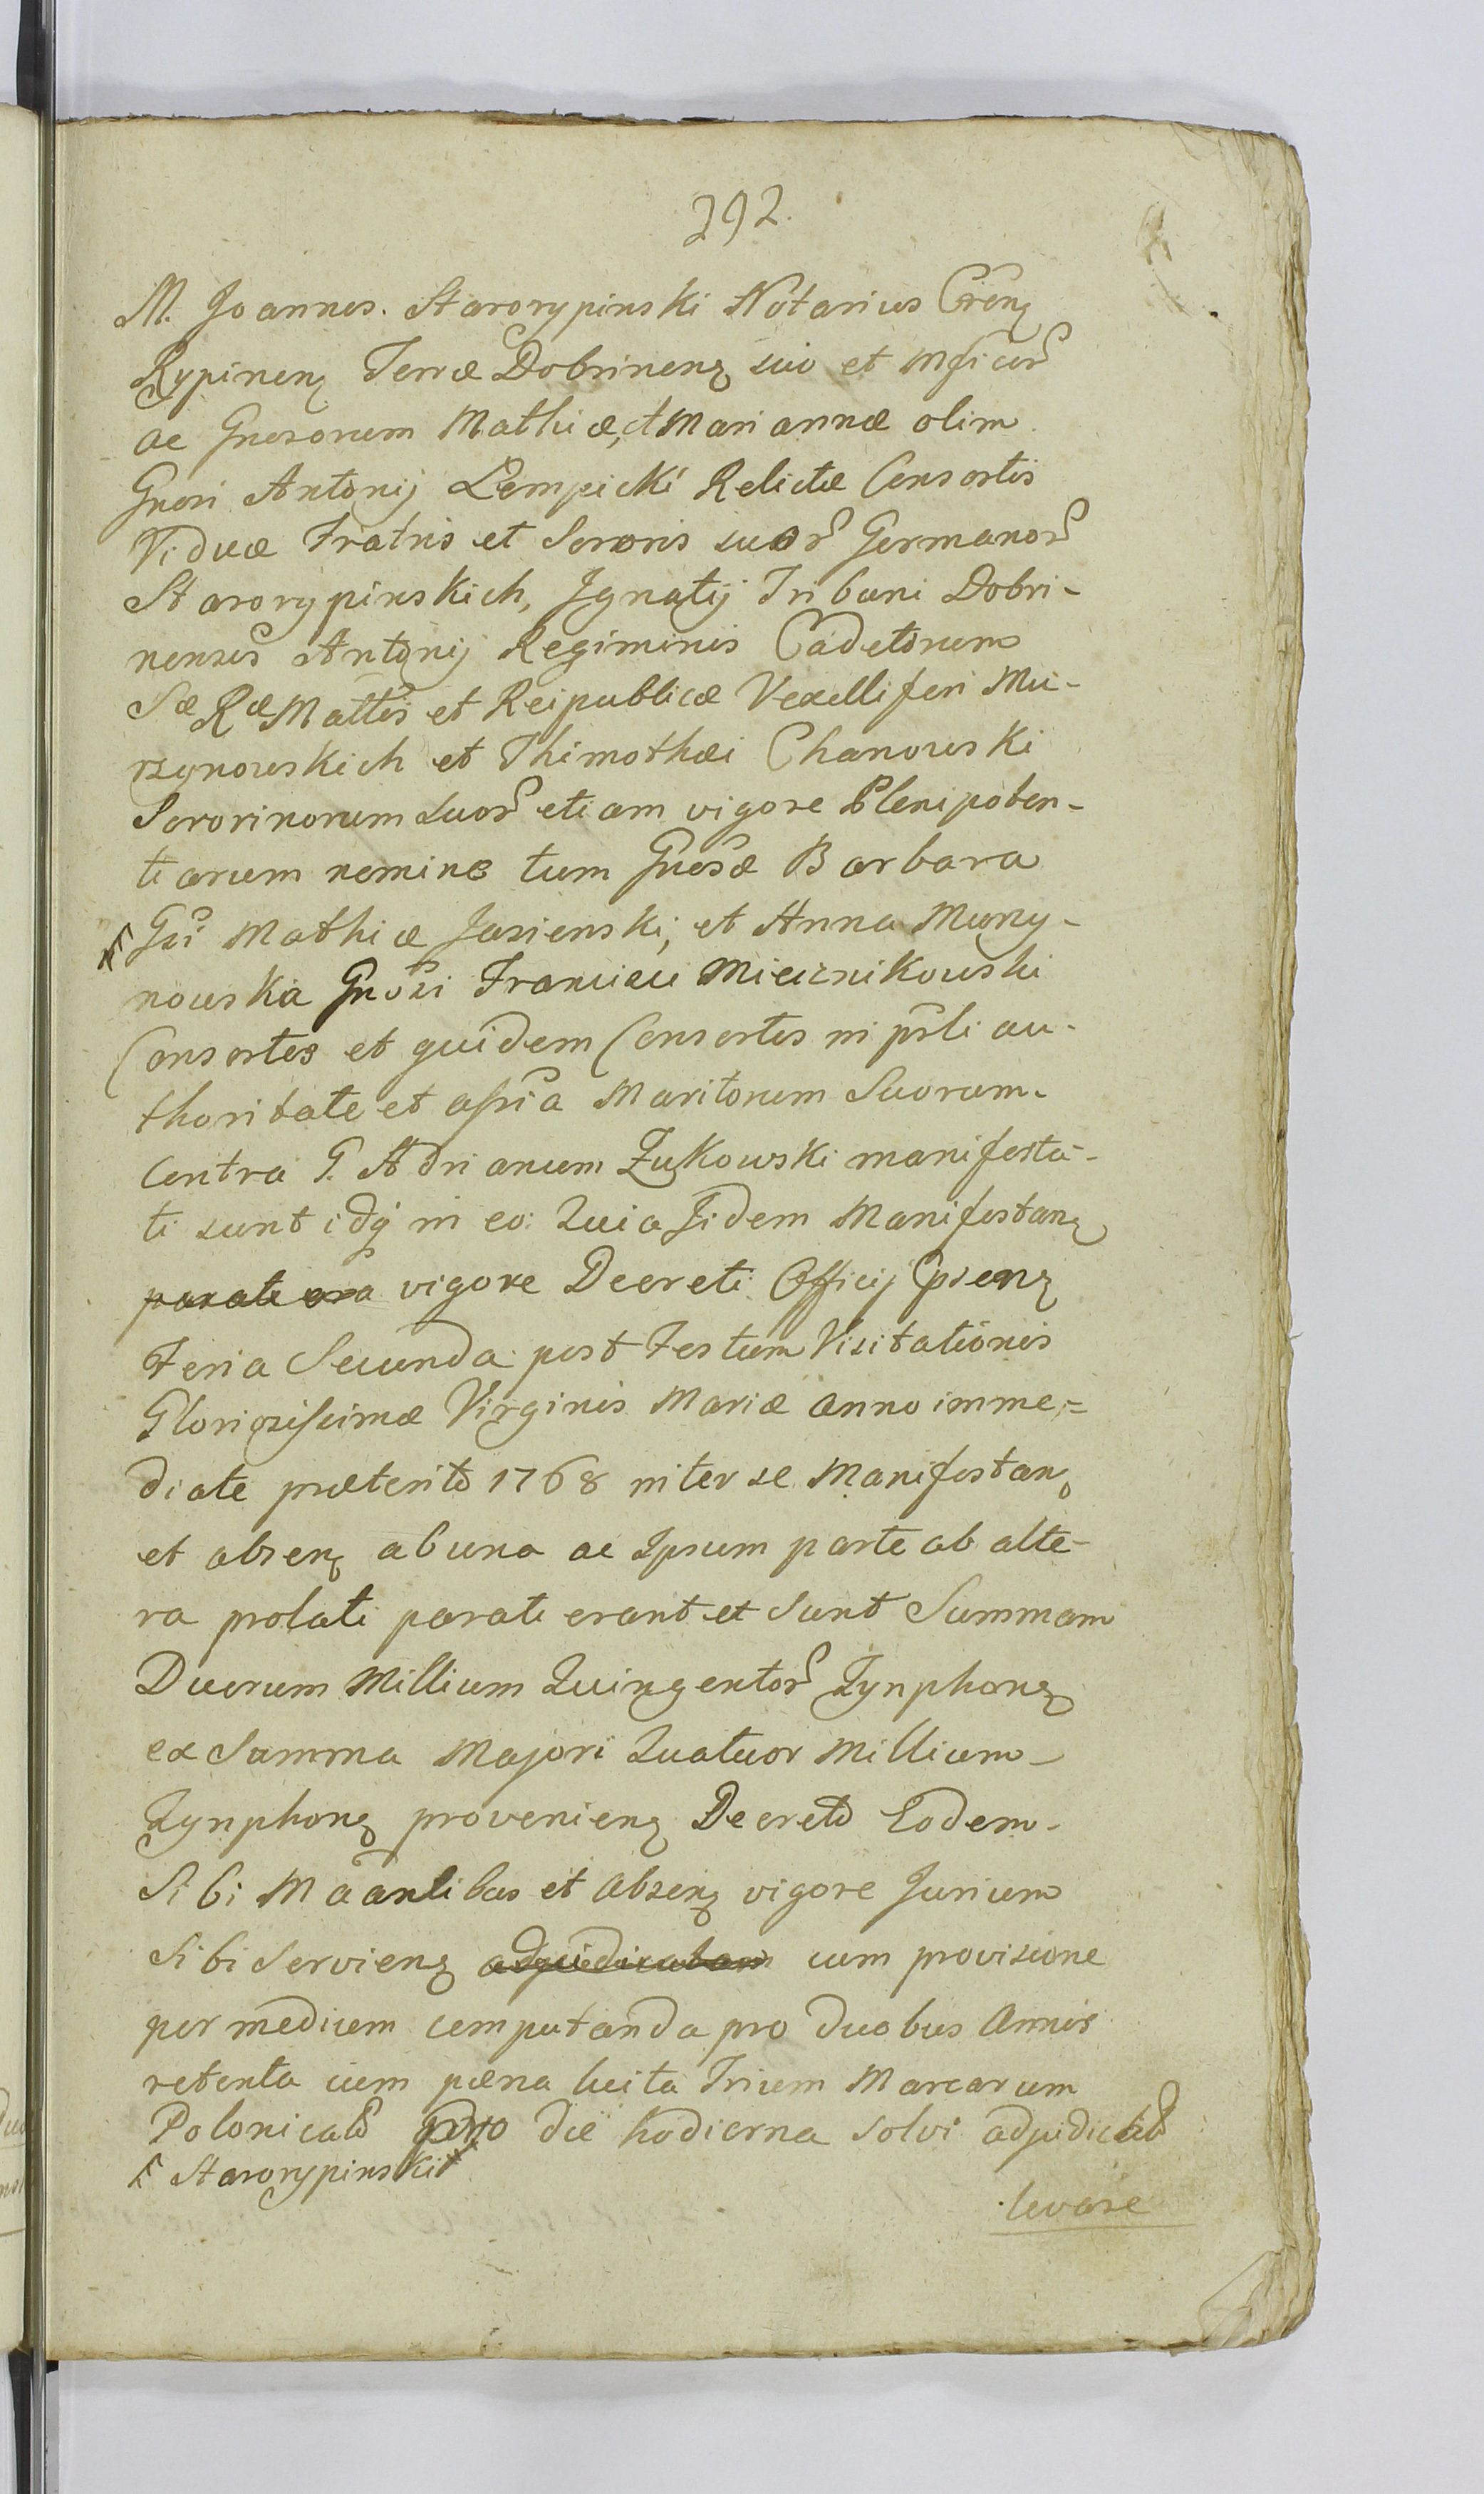 292.
M. Joannes. Starorypinski Notarius Crens
Rypinens Terræ Dobrinens suo et Mficor
ac Gnosorum Mathiæ, et Mariannæ olim
Gnosi Antonij Łempicki Relictæ Consortis
Viduæ Fratris et Sororis suor Germanor
Starorypinskich, Ignatij Tribuni Dobri-
nensis Antonij Regiminis Cadetorum
Sæ Ræ Mattis et Reipublicæ Vexelliferi Mu-
rzynowskich et Thimothæi Chanowski
Sororinorum suor etiam vigore Plenipoten-
tiarum nomine tum Gnosæ Barbara
Gsi Mathiæ Jasienski, et Anna Murzy-
nowska Gnosi Francisci Miecznikowski
Consortes et quidem Consortes in pñli au-
thoritate et assña Maritorum Suorum
Contra G. Adrianum Zukowski manifesta-
ti sunt idq in eo: Quia Iidem Manifestans
parati era vigore Decreti Officij Cpsens
Feria Secunda post Festum Visitationis
Gloriosissimæ Virginis Mariæ anno imme-
diate præterito 1768 inter se Manifestan
et absens ab una ac Ipsum parte ab alte-
ra prolati parati erant et sunt Summam
Duorum Millium Quingentor Tynphons
ex Summa Majori Quatuor Millium
Tynphons proveniens Decreto Eodem
Sibi Maanlibus et absens vigore Jurium
Sibi Serviens adjudicatam cum provisione
per medium computanda pro duobus Annis
retenta cum pæna luita Trium Marcarum
Polonical pro die hodierna solvi adjudicata
Starorypinski
levare